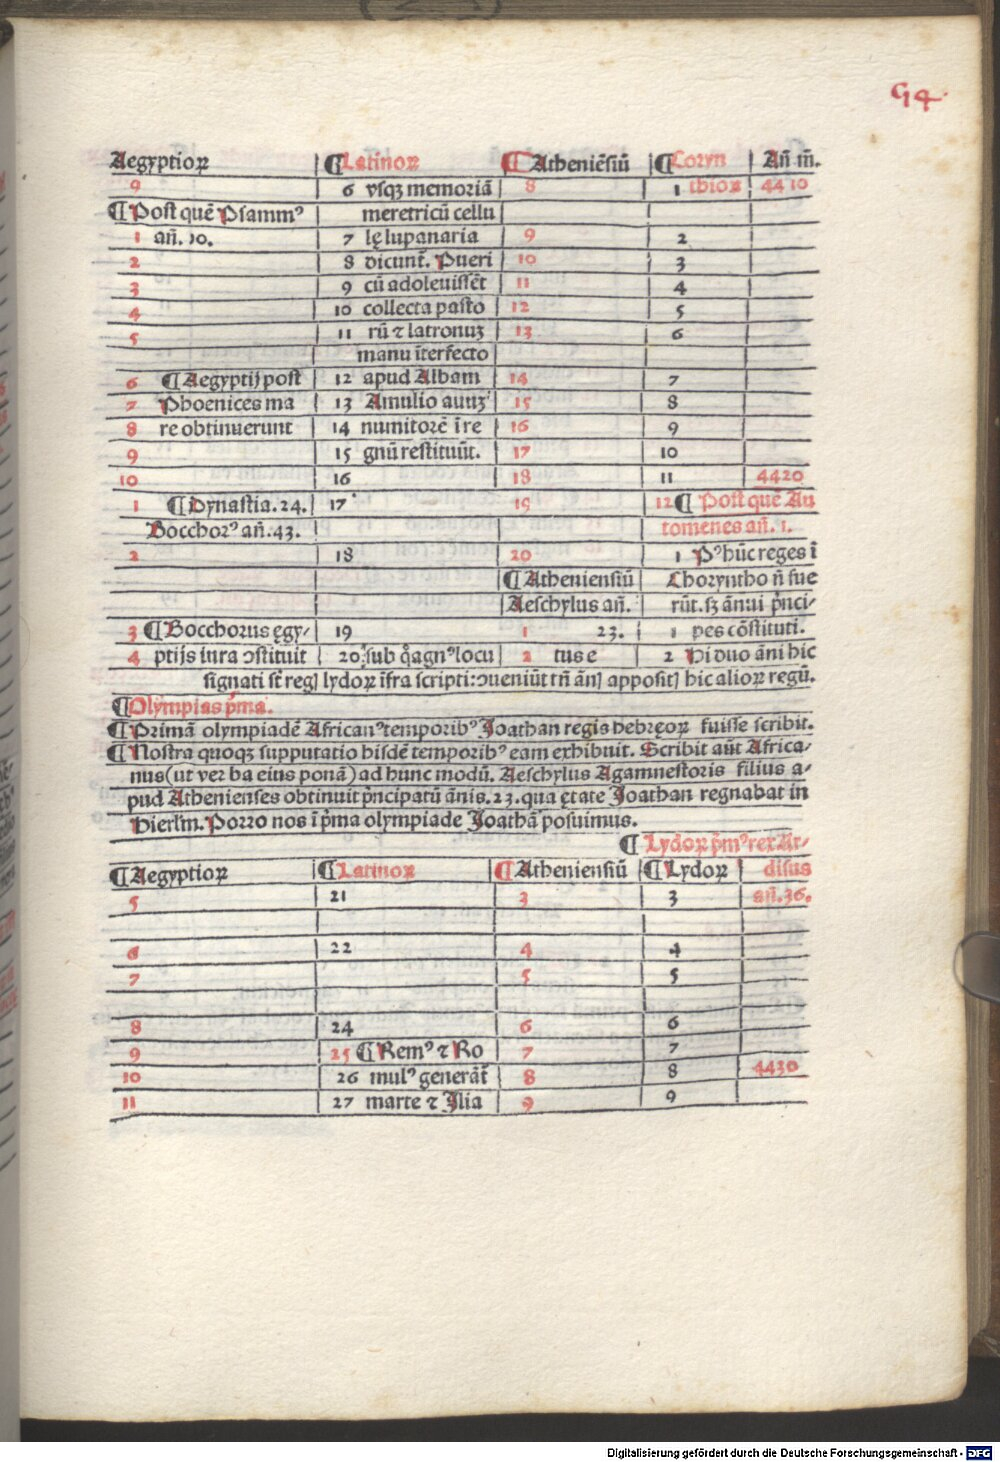 54.
Aegyptioꝝ ¶Latinoꝝ ¶Atheniēsiū ¶Coryn Añ m̄.
9 6 vsqꝫ memoriā 8 1 thioꝝ 4410
¶Post quē Psammꝰ meretricū cellu
1 añ. 10. 7 lę lupanaria 9 2
2 8 dicunt̄. Pueri 10 3
3 9 cū adoleuissēt 11 4
4 10 collecta pasto 12 5
5 11 rū ⁊ latronuꝫ 13 6
manu īterfecto
6 ¶Aegyptij post 12 apud Albam 14 7
7 Phoenices ma 13 Amulio auuꝫ 15 8
8 re obtinuerunt 14 numitorē ī re 16 9
9 15 gnū restituūt. 17 10
10 16 18 11 4420
1 ¶Dynastia. 24. 17 19 12 ¶Post quē Au
Bocchorꝰ añ. 43. tomenes añ. 1.
2 18 20 1 Pꝰ hūc reges ī
¶Atheniensiū Choryntho ñ fue
Aeschylus añ. rūt. sꝫ ānui p̄nci⸗
3 ¶Bocchorus ęgy⸗ 19 1 23. 1 pes cōstituti.
4 ptijs iura ↄstituit 20 sub q̊ agnꝰ locu 2 tus e 2 Hi duo āni hic
signati st̄ regꝫ lydoꝝ īfra scripti: ↄueniūt tñ āni appositi hic alioꝝ regū.
¶Olympias p̄ma.
¶Primā olympiadē Africanꝰ temporibꝰ Joathan regis hebręoꝝ fuisse scribit.
¶Nostra quoqꝫ supputatio hisdē temporibꝰ eam exhibuit. Scribit aūt Africa⸗
nus (ut verba eius ponā) ad hunc modū. Aeschylus Agamnestoris filius a⸗
pud Athenienses obtinuit p̄ncipatū ānis. 23. qua ętate Joathan regnabat in
Hierlm̄. Porro nos ī p̄ma olympiade Joathā posuimus.
¶Lydoꝝ p̄mꝰ rex Ar⸗
¶Aegyptioꝝ ¶Latinoꝝ ¶Atheniensiū ¶Lydoꝝ disus
5 21 3 3 añ. 36.
6 22 4 4
7 5 5
8 24 6 6
9 25 ¶Remꝰ ⁊ Ro 7 7
10 26 mulꝰ generāt̄ 8 8 4430
11 27 marte ⁊ Ilia 9 9
Digitalisierung gefördert durch die Deutsche Forschungsgemeinschaft - DFG